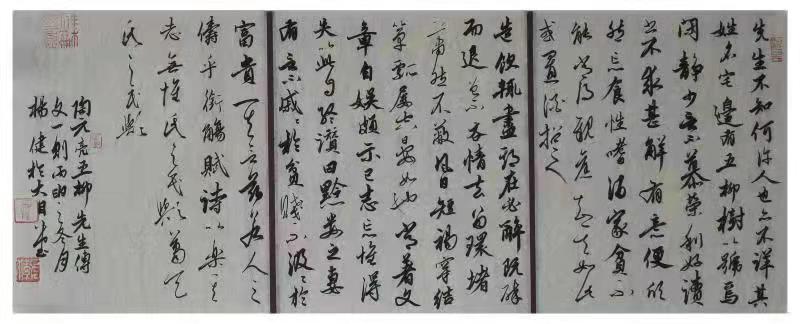 先生不知何许人也亦不詳其
姓名宅邊有五柳樹以號焉
閑静少言不慕榮利好讀
书不求甚解有意便欣
然忘食性嗜酒家貧不
能常得親舊知其如此
或置酒招之
造飲輒盡期在必醉既醉
而退曾不吝情去留環堵
蕭然不蔽風日短褐穿結
簞瓢屢空晏如也常著文
章自娱頗示己志忘懷得
失以此自終讚曰黔婁之妻
有言不戚戚於貧賤不汲汲於
富貴其言兹若人之
儔乎銜觴賦詩以樂其
志無懷氏之民歟葛天
氏之民歟
陶元亮五柳先生傳
文一則丙申之冬月
楊健於大目